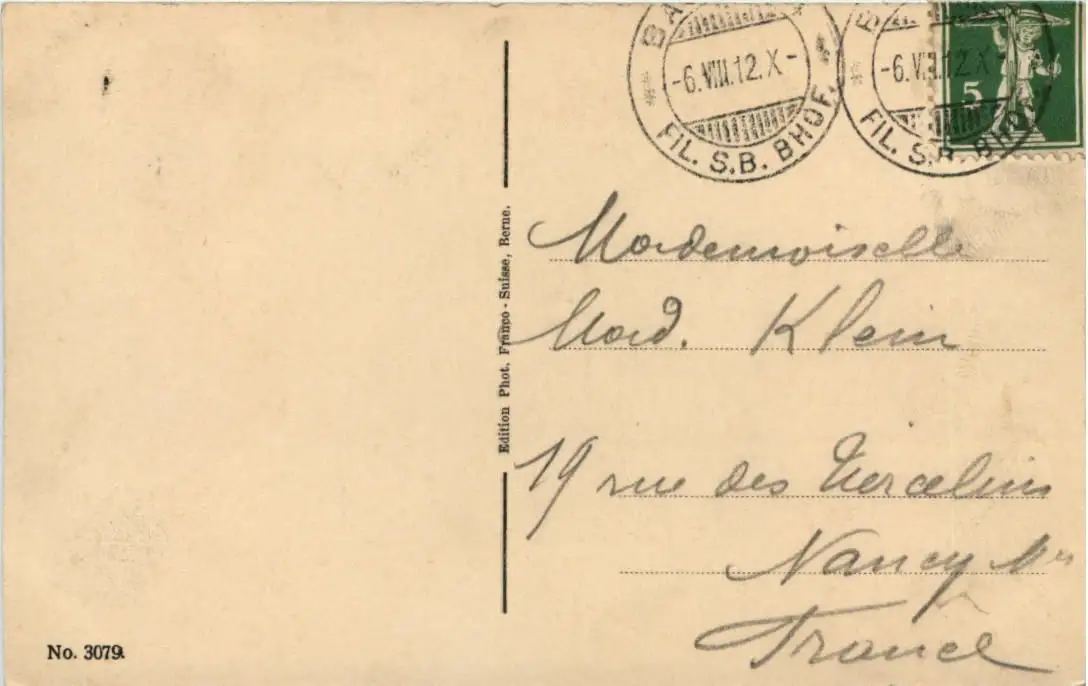 BA
-6.VIII.12.X-
FIL. S.B. BHOF.
B
-6.VIII.12.X-
FIL. S.B. BHOF.
5
Mademoiselle
Mad. Klein
19 rue des Tiercelins
Nancy
France
Edition Phot. Franco-Suisse, Berne.
No. 3079.